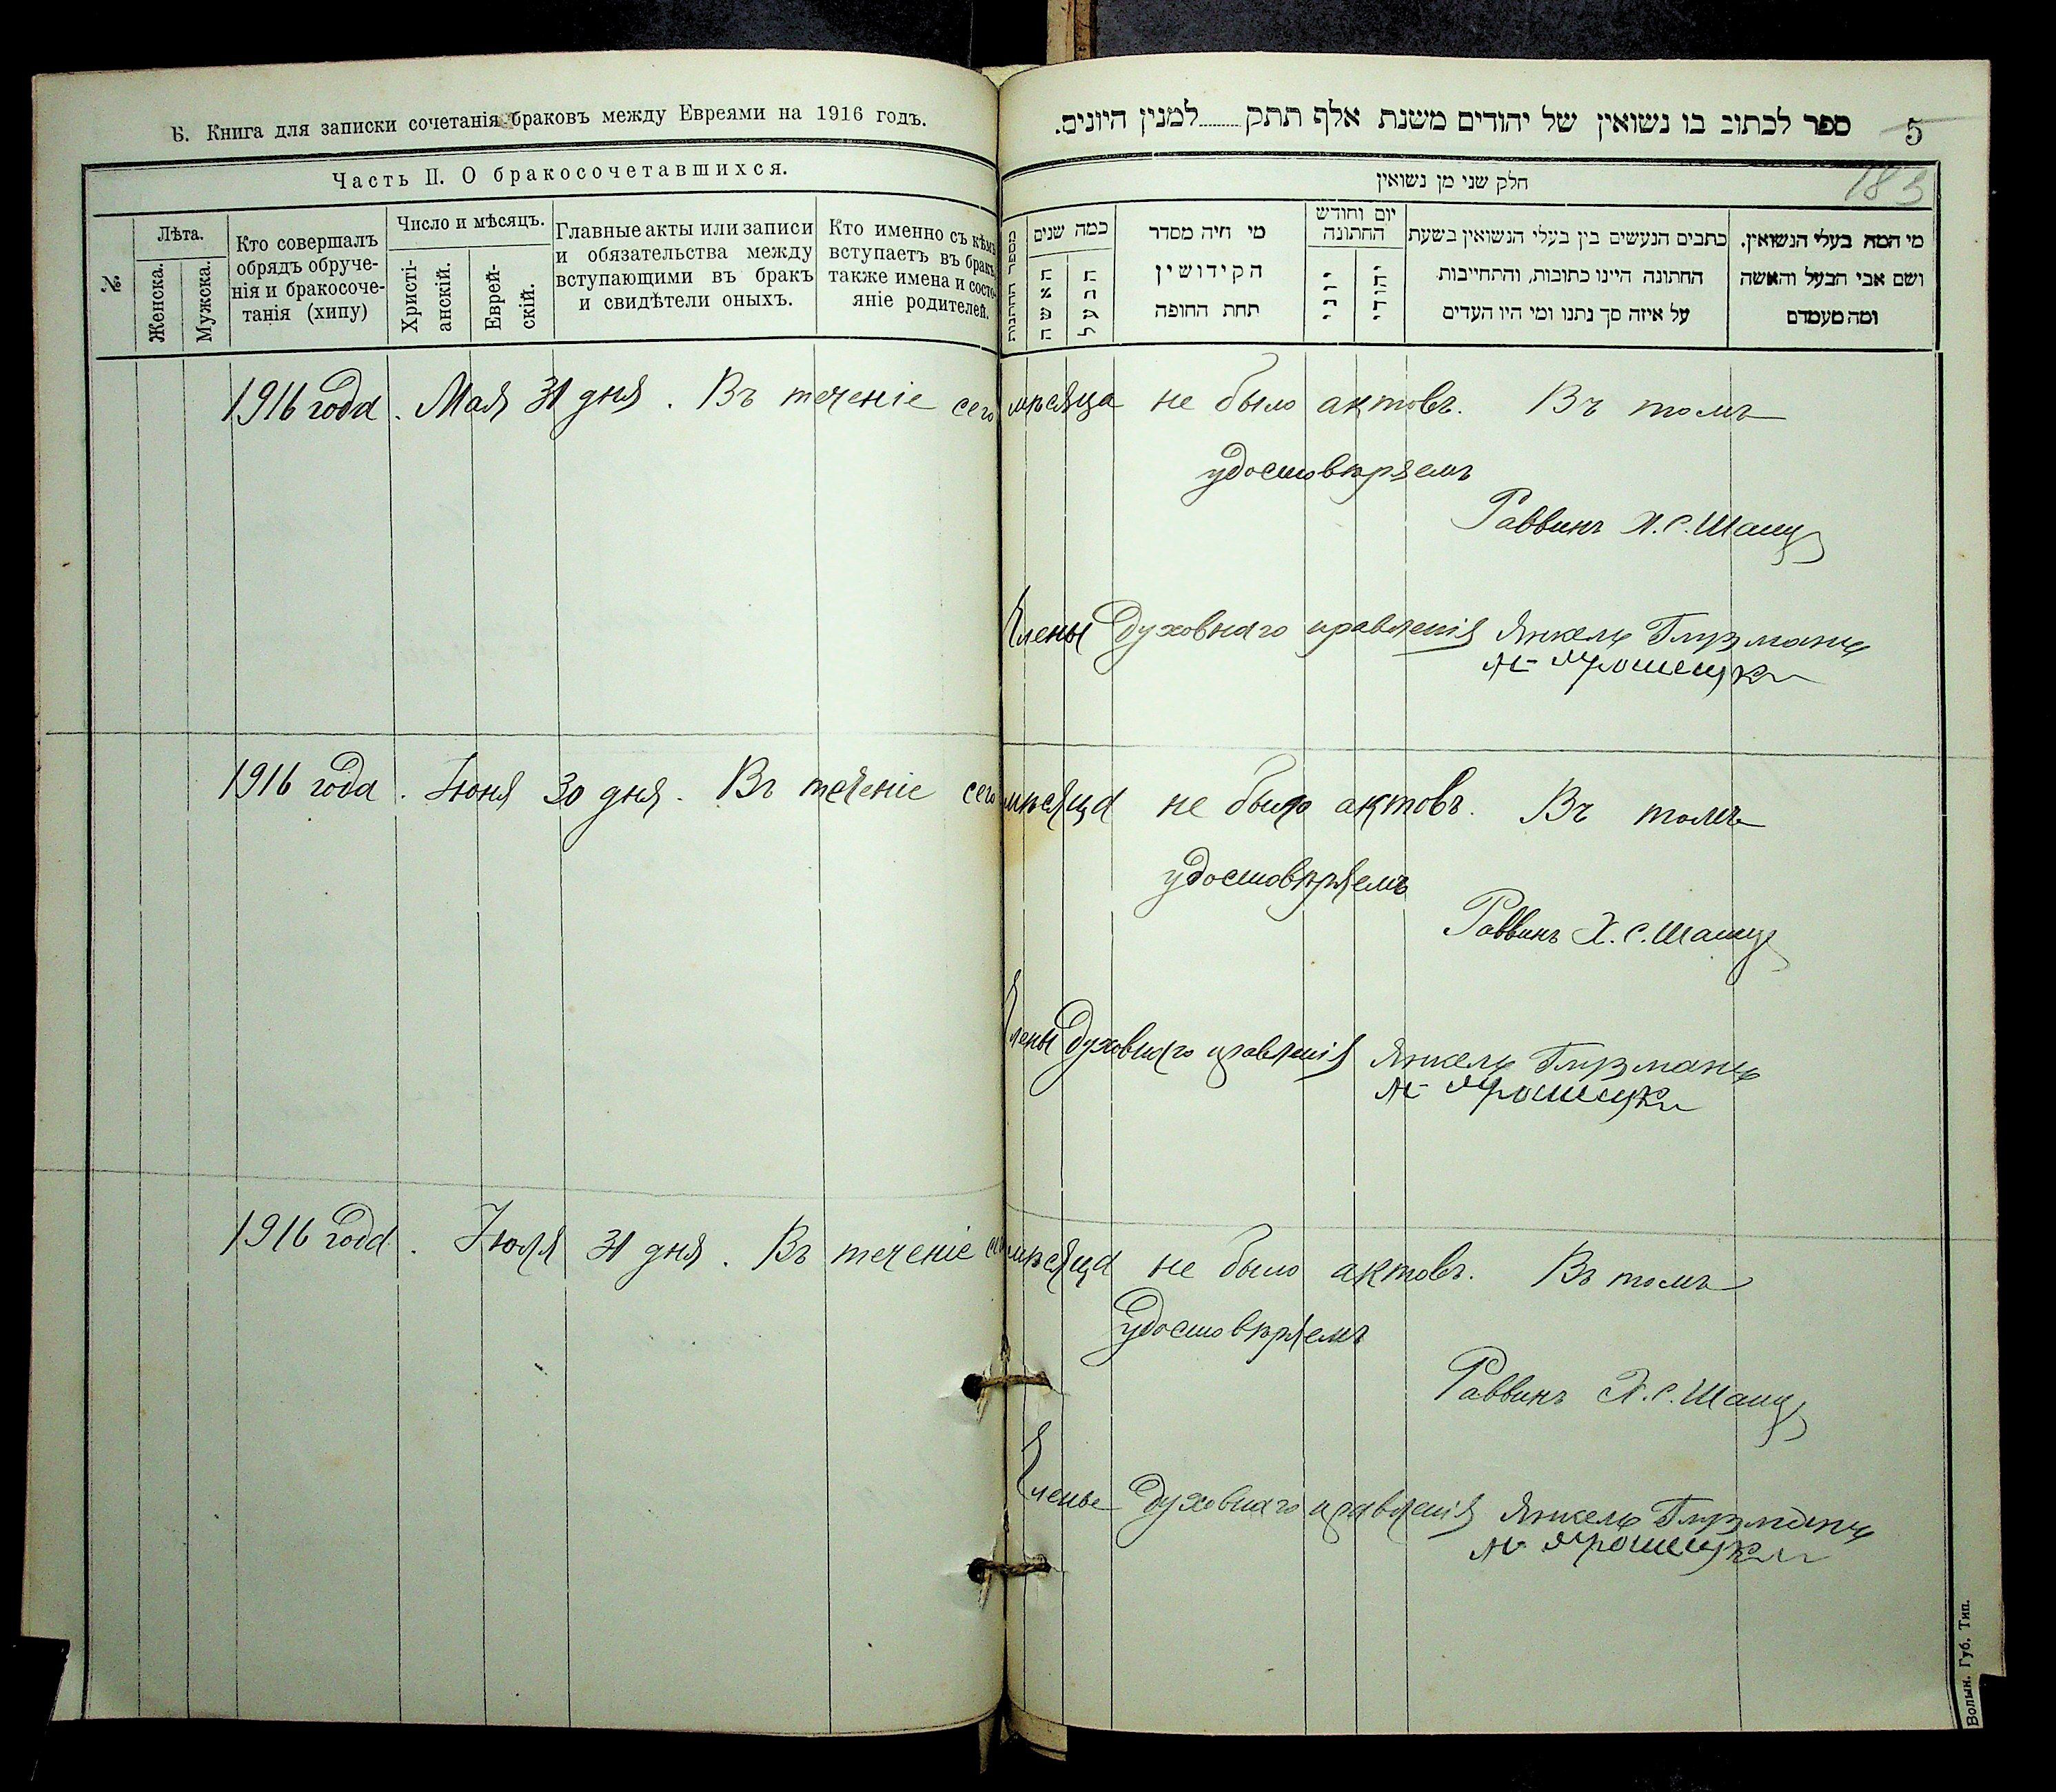 Б. Книга для записки сочетанія браковъ между Евреями на 1916 годъ.
Часть II. О бракосочетавшихся.
№
Лѣта.
Женска.
Мужска.
Кто совершалъ
обрядъ обруче-
нія и бракосоче-
танія (хипу)
Число и мѣсяцъ.
Христі-
анскій.
Еврей-
скій.
Главные акты или записи
и обязательства между
вступающими въ бракъ
и свидѣтели оныхъ.
Кто именно съ кѣмъ
вступаетъ въ бракъ,
также имена и состо-
яніе родителей.
ספר לכתוב בו נשואין של יהודים משנת אלף תתק........למנין היונים.
5
183
חלק שני מן נשואין
מי המה בעלי הנשואין.
ושם אבי הבעל והאשה
ומה מעמדם
כתבים הנעשים בין בעלי הנשואין בשעת
החתונה היינו כתובות, והתחייבות
על איזה סך נתנו ומי היו העדים
יום וחודש
החתונה
יהודי
יוני
מי היה מסדר
הקידושין
תחת החופה
כמה שנים
הבעל
האשה
מספר החתונות
1916 года. Мая 31 дня. Въ теченіе сего мѣсяца не было актовъ. Въ томъ
удостовѣряемъ
Раввинъ Х. С. Шапц
Члены Духовнаго правленія Янкель Глузманъ
1916 года. Іюня 30 дня. Въ теченіе сего мѣсяца не было актовъ. Въ томъ
удостовѣряемъ
Раввинъ Х. С. Шапц
Члены Духовнаго правленія Янкель Глузманъ
1916 года. Іюля 31 дня. Въ теченіе сего мѣсяца не было актовъ. Въ томъ
удостовѣряемъ
Раввинъ Х. С. Шапц
Члены Духовнаго правленія Янкель Глузманъ
Волын. Губ. Тип.